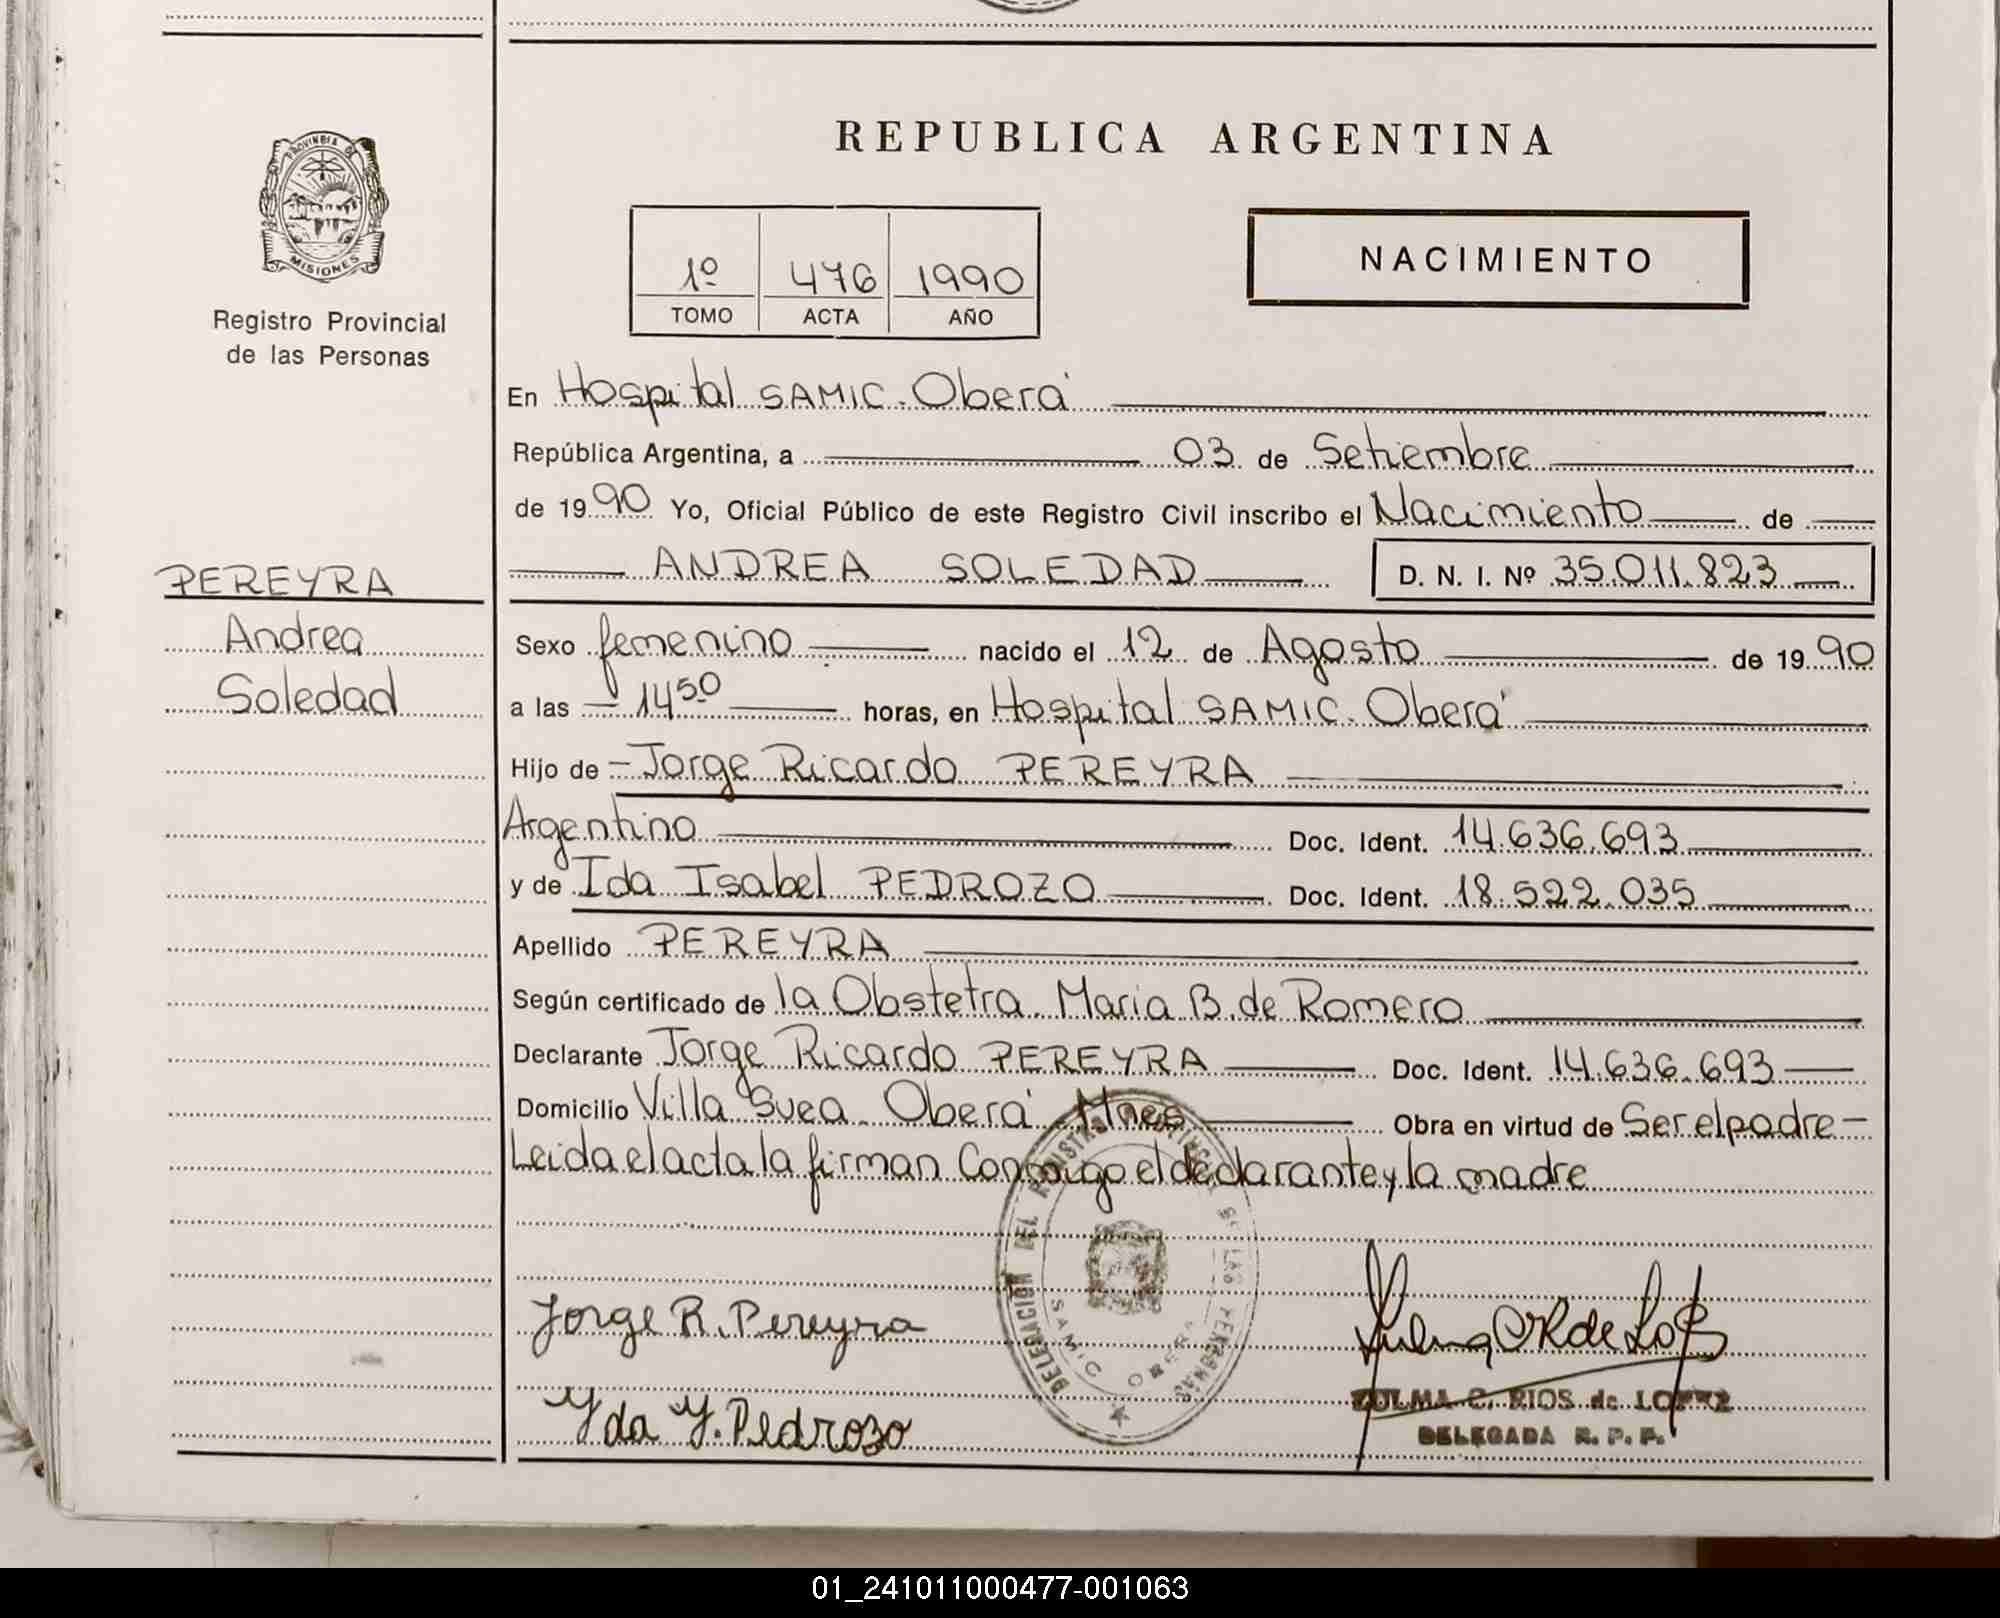 REPUBLICA ARGENTINA
PROVINCIA DE
MISIONES
Registro Provincial
de las Personas
1º 476 1990
TOMO ACTA AÑO
NACIMIENTO
En Hospital SAMIC. Oberá
República Argentina, a 03 de Setiembre
de 1990 Yo, Oficial Público de este Registro Civil inscribo el Nacimiento de
ANDREA SOLEDAD D. N. I. Nº 35.011.823
PEREYRA
Andrea
Soledad
Sexo femenino nacido el 12 de Agosto de 1990
a las 14 50 horas, en Hospital SAMIC. Oberá
Hijo de Jorge Ricardo PEREYRA
Argentino Doc. Ident. 14.636.693
y de Ida Isabel PEDROZO Doc. Ident. 18.522.035
Apellido PEREYRA
Según certificado de la Obstetra. Maria B. de Romero
Declarante Jorge Ricardo PEREYRA Doc. Ident. 14.636.693
Domicilio Villa Svea. Oberá Mnes Obra en virtud de Ser el padre-
Leida el acta la firman Conmigo el declarante y la madre
DELEGACION DEL REGISTRO PROVINCIAL DE LAS PERSONAS
SAMIC OBERA
Jorge R. Pereyra
Yda Y. Pedrozo
ZULMA C. RIOS de LOPEZ
DELEGADA R. P. P.
01_241011000477-001063